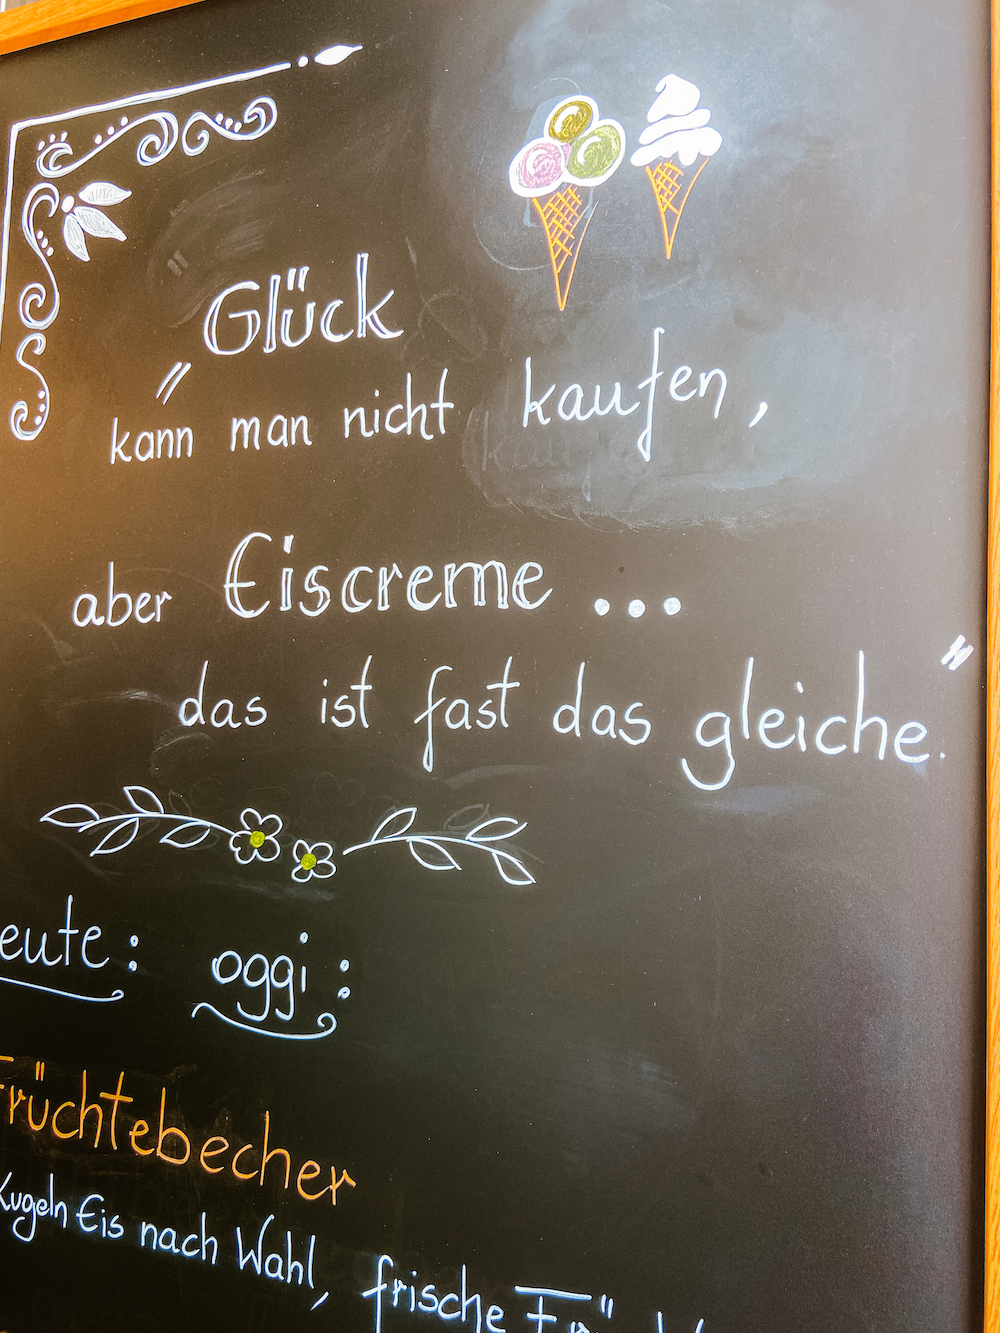 „Glück
kann man nicht kaufen,
aber Eiscreme ...
das ist fast das gleiche."
eute: oggi:
Früchtebecher
Kugeln Eis nach Wahl, frische